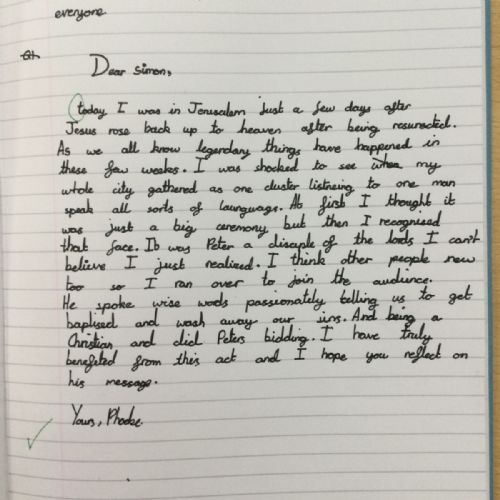 everyone
Q1.
Dear Simon,
today I was in Jerusalem just a few days after
Jesus rose back up to heaven after being resurected.
As we all know legendary things have happened in
these few weeks. I was shocked to see when my
whole city gathered as one cluster listneing to one man
speak all sorts of launguage. At first I thought it
was just a big ceremony but then I recognised
that face. It was Peter a disciple of the lords I can't
believe I just realised. I think other people new
too so I ran over to join the audience.
He spoke wise wods passionately telling us to get
baptised and wash away our sins. And being a
Christian and did Peters bidding. I have truly
benefited from this act and I hope you reflect on
his message.
Yours, Phoebe